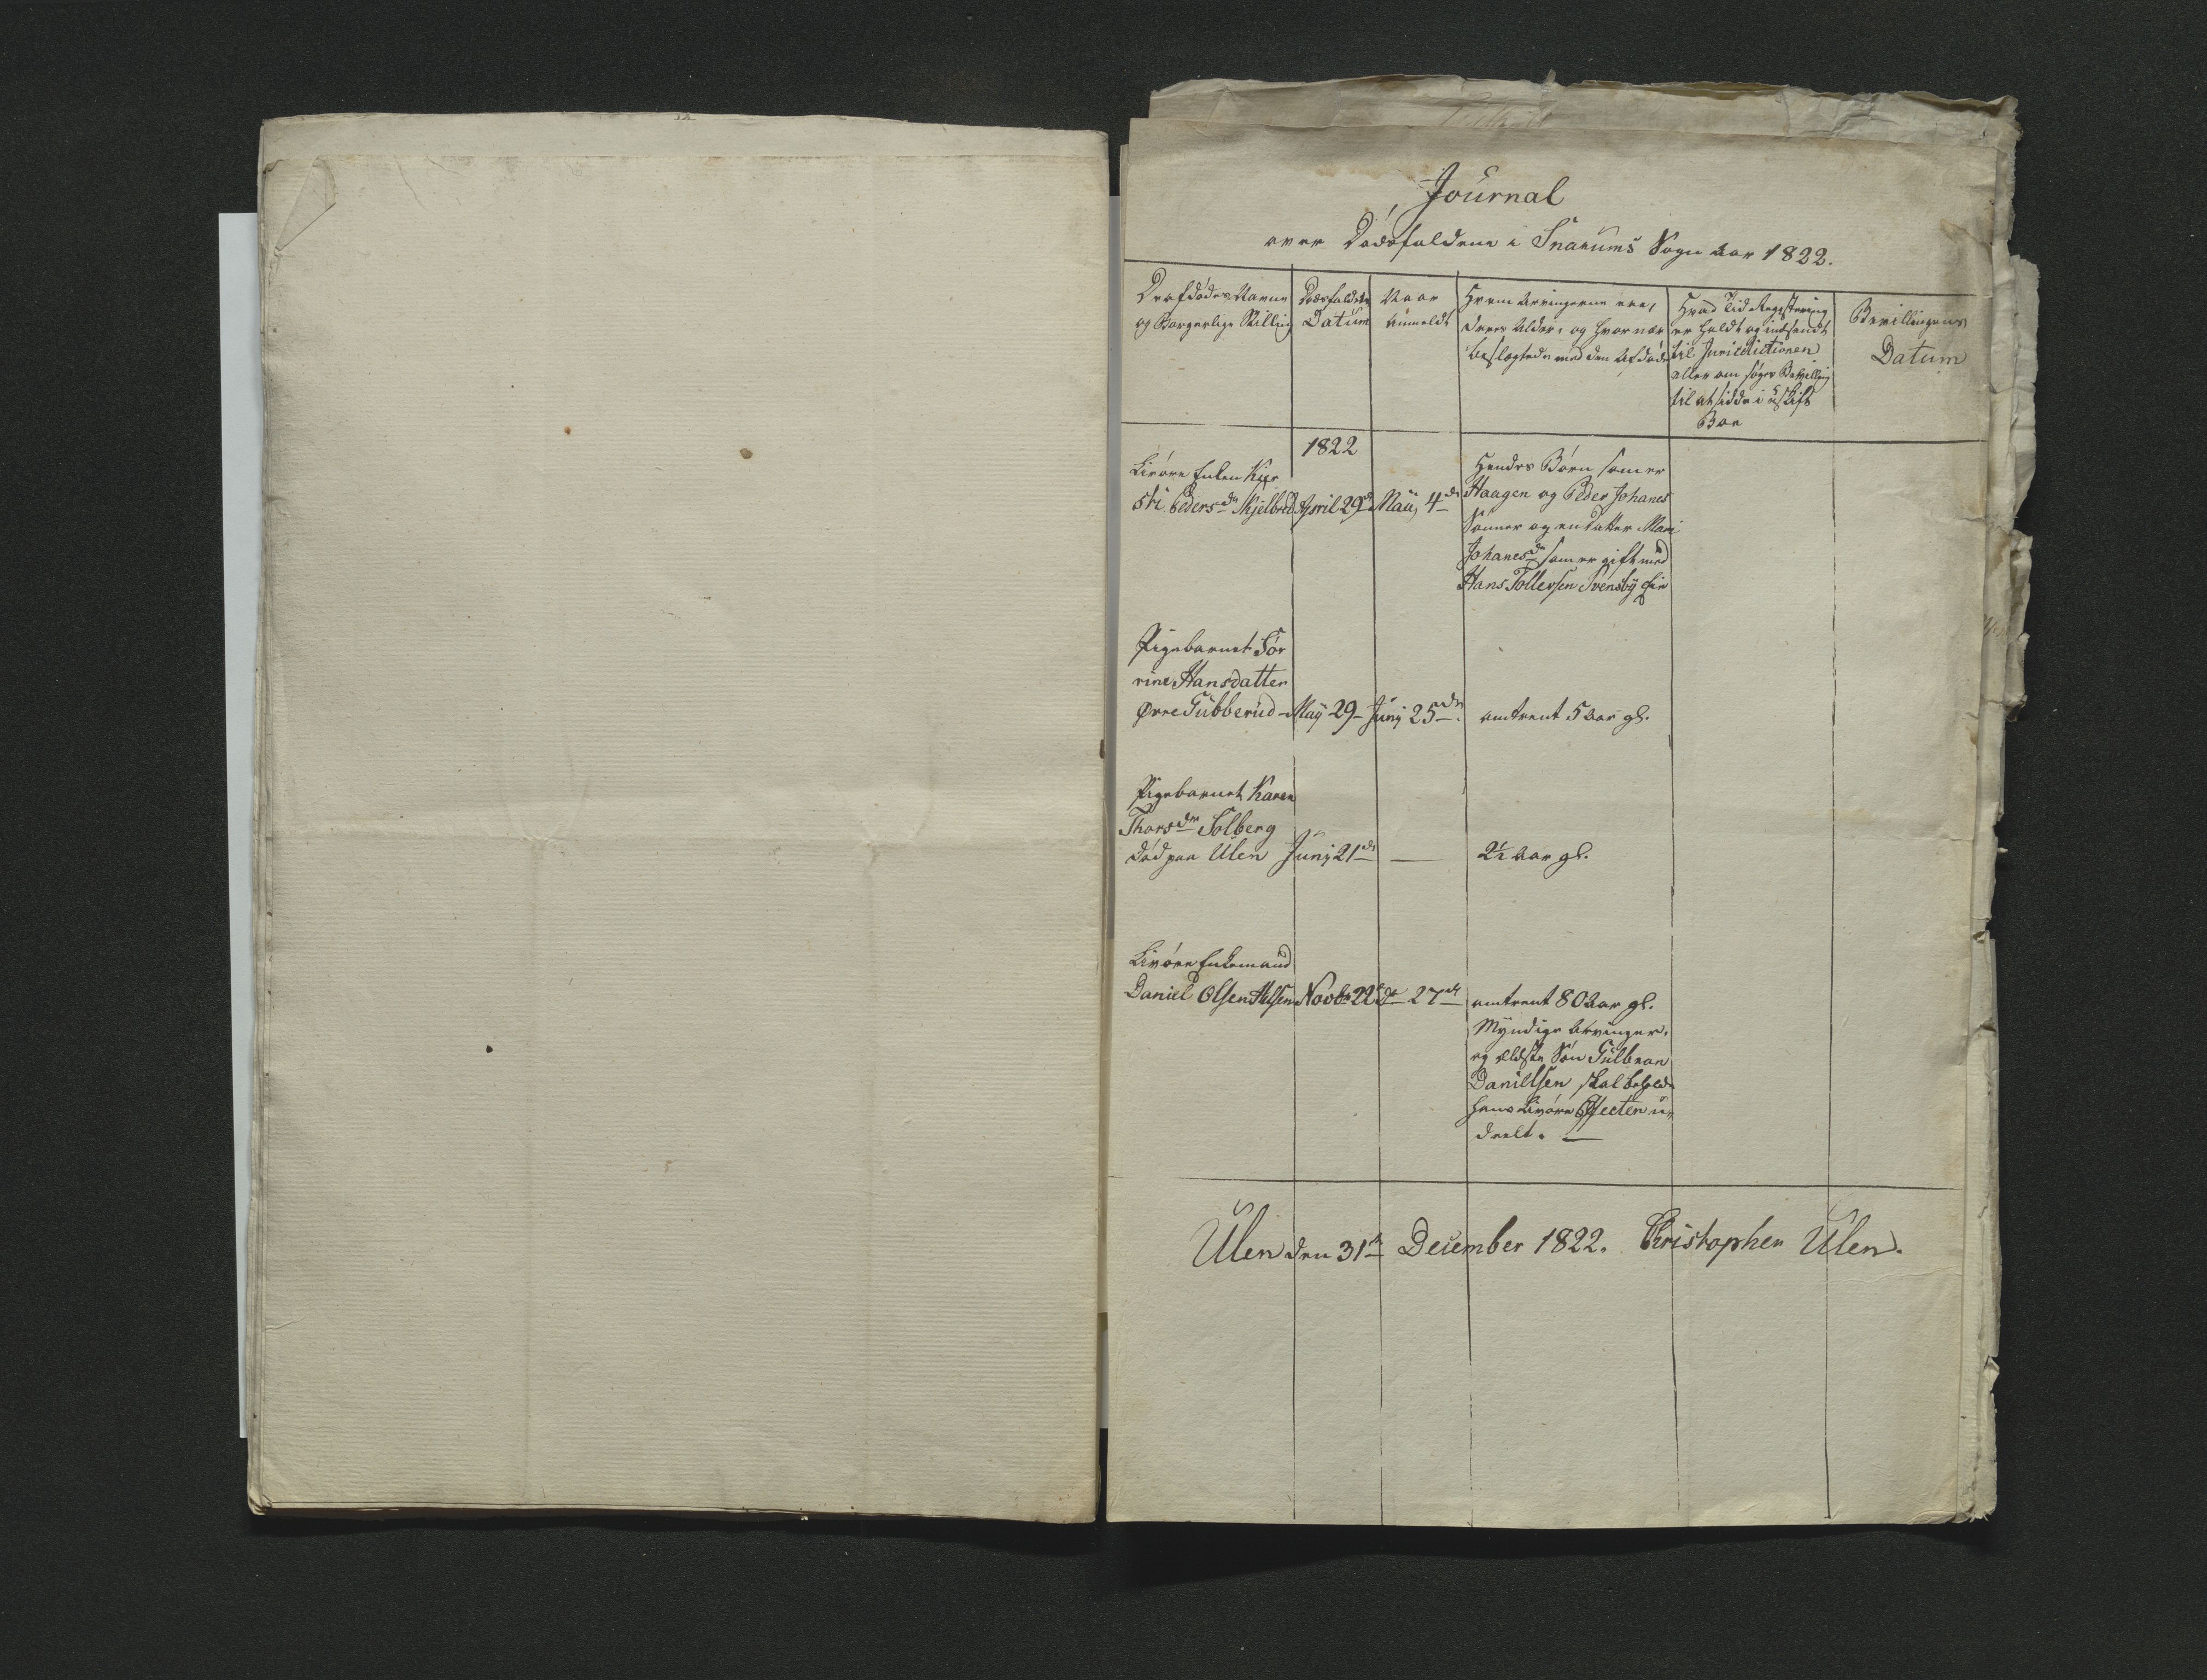 Journal
over Dødsfaldene i Snarums Sogn aar 1822.
De afdødes Navne
og Borgerlige Stilling
Dødsfaldets
Datum
Naar
Anmeldt
Hvem Arvingerne ere,
deres Alder, og hvor nær
beslægtede med den Afdøde
Hvad Tid Registering
er holdt og indsendt
til Jurisdictionen
eller om søges Bevilling
til at sidde i uskift
Boe
Bevillingens
Datum
1822
Livøre Enken Kier
sti Peders dr Skjelbred April 29 d Maij 4 de
Hendes Børn som er
Haagen og Peder Johanes
Sønner og en datter Mari
Johanes dr som er gift med
Hans Tollefsen Svensby
Pigebarnet Sør
rine Hansdatter
Øvre Gubberud - Maij 29 - Junij 25 de omtrent 5 aar gl.
Pigebarnet Karen
Thors dr Solberg
død paa Ulen Junij 21 de — 2½ aar gl.
Livøre Enkemand
Daniel Olsen Novbr 22 de 27 de omtrent 80 aar gl.
Myndige Arvinger.
og ældste Søn Gulbran
Danillsen skal beholde
hans Livøre Effecten u,,
deelt. —
Ulen den 31te December 1822. Christopher Ulen.